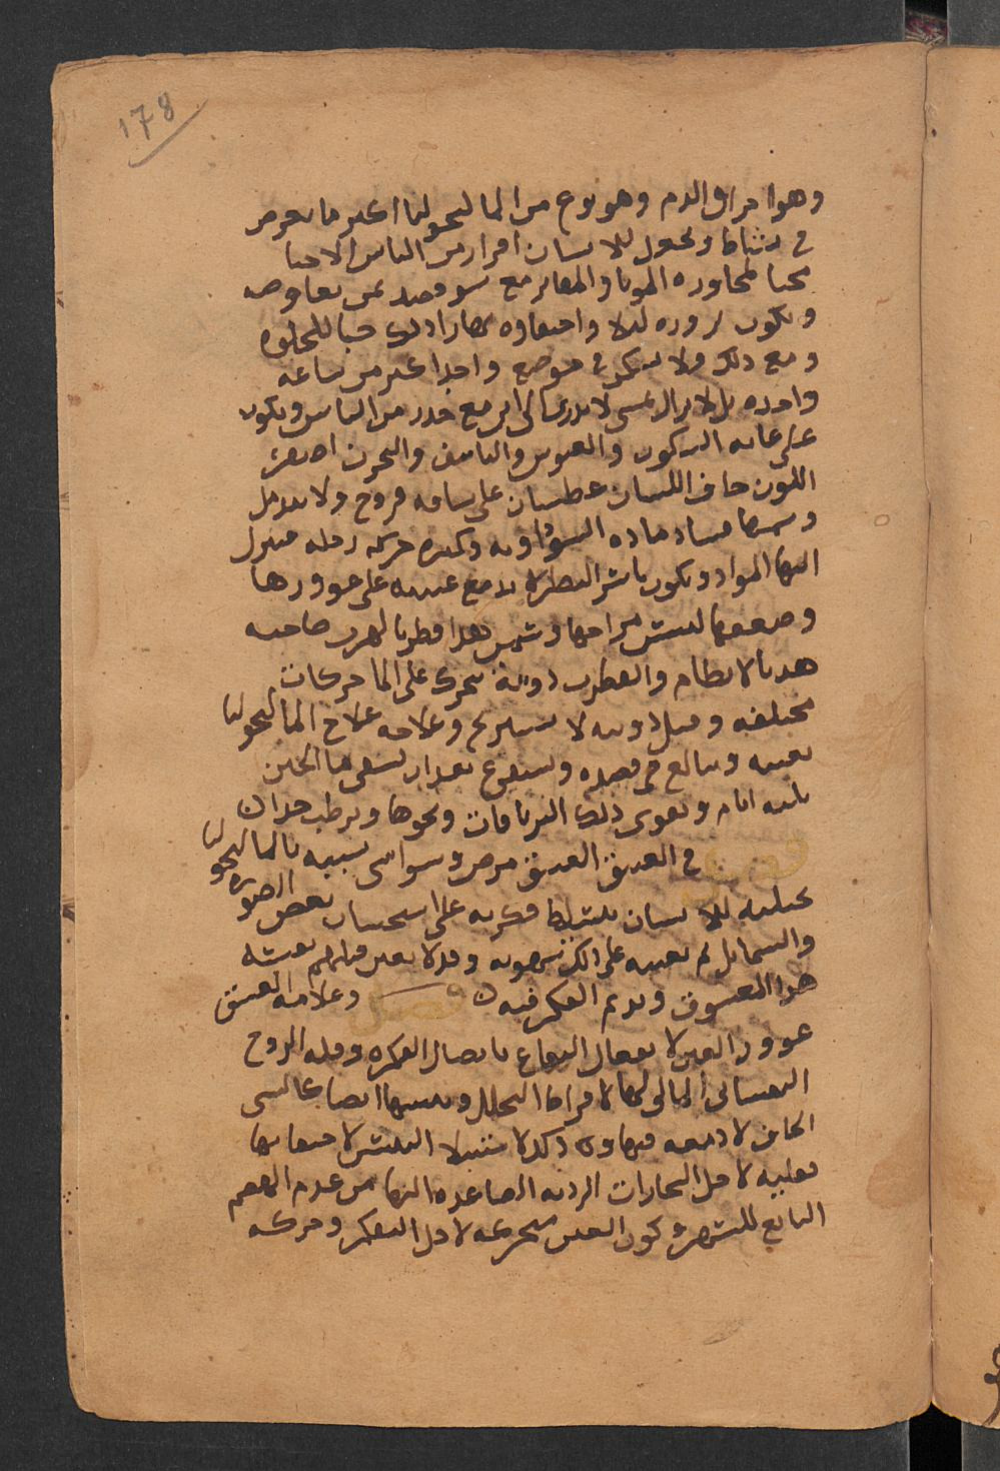 178
وهو احراق الدم وهو نوع من المالنخوليا اكثر ما يعرض
في شباط ويجعل الانسان فرارا من الناس الاحيا
محبا لمجاورة الموتا والمقابر مع سوء قصد لمن يغافصه
ويكون بروزه ليلا واختفاوه نهارا كل ذلك حبا للخلوه
ومع ذلك فلا يسكن في موضع واحد اكثر من ساعه
واحده بل لا يزال يمشي لا يدري الى اين مع حذر من الناس ويكون
على غايه السكون والعبوس والتاسف والتحزن اصفر
اللون جاف اللسان عطشان على ساقه قروح لا تندمل
وسببها فساد ماده السوداويه وكثره حركه رجله فتنزل
اليها المواد ويكون يابس البصر لا يدمع عينيه على غوورها
وضعفها ليبس مزاجها وسمي هذا قطربا لهرب صاحبه
هربا لا نظام والقطرب دويبة تتحرك على الما حركات
مختلفه وقيل دويبه لا تستريح وعلاجه علاج المالنخوليا
بعينه ويبالغ في فصده ويستفرغ
ثلثه ايام ويقوى ذلك الترياقات ونحوها ويرطب جدا
فصل في العشق العشق مرض وسواسي شبيه بالمالنخوليا
يجلبه للانسان تسليط فكرته على استحسان بعض الصور
والشمايل ثم تعينه على ذلك شهوته وقد لا تعين
هذا المعشوق ويديم الفكر فيه فصل وعلامه العشق
غوور العين لا نفعال الدماغ باتصال الفكره وقله الروح
النفساني لافراط التحلل ويبسها ايضا كالشي
الجاف لا دمعه فيها
ثقيله لاجل البخارات الرديه الصاعده اليها من عدم الهضم
التابع للسهر وكون العين متحركه لاجل التفكر وحركه